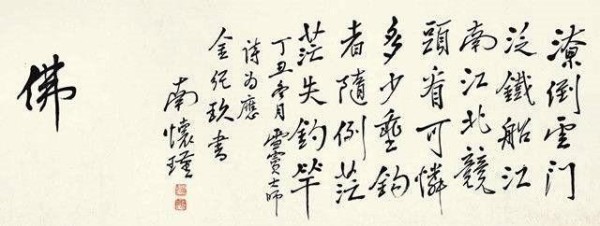 潦倒雲門
泛鐵船江
南江北競
頭看可憐
多少垂鈎
者隨例茫
茫失釣竿
丁丑月雪竇大師
詩為應
金玖書
南懷瑾
佛